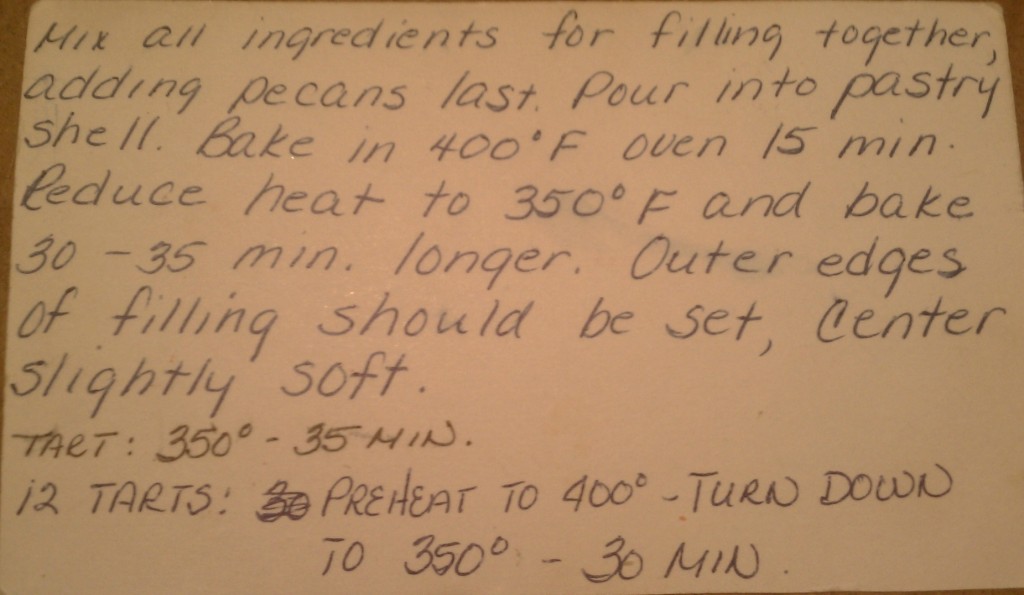 Mix all ingredients for filling together,
adding pecans last. Pour into pastry
shell. Bake in 400°F oven 15 min.
Reduce heat to 350°F and bake
30 - 35 min. longer. Outer edges
of filling should be set, Center
slightly soft.
TART: 350° - 35 MIN.
12 TARTS: PREHEAT TO 400° - TURN DOWN
TO 350° - 30 MIN.